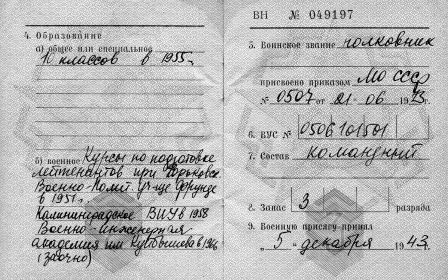 4. Образование
а) общее или специальное
10 классов в 1955 г.
б) военное Курсы по подготовке
лейтенантов при Горьковск.
Военно-Полит уч-ще Фрунзе
в 1951 г.
Калининградское ВИУ в 1958
Военно-инженерная
академия им Куйбышева в
(заочно)
ВН № 049197
5. Воинское звание полковник
присвоено приказом МО СССР
№ 0507 от 21 06 1973 г.
6. ВУС № 0506101501
7. Состав командный
8. Запас 3 разряда
9. Военную присягу принял
„5" декабря 1943 г.